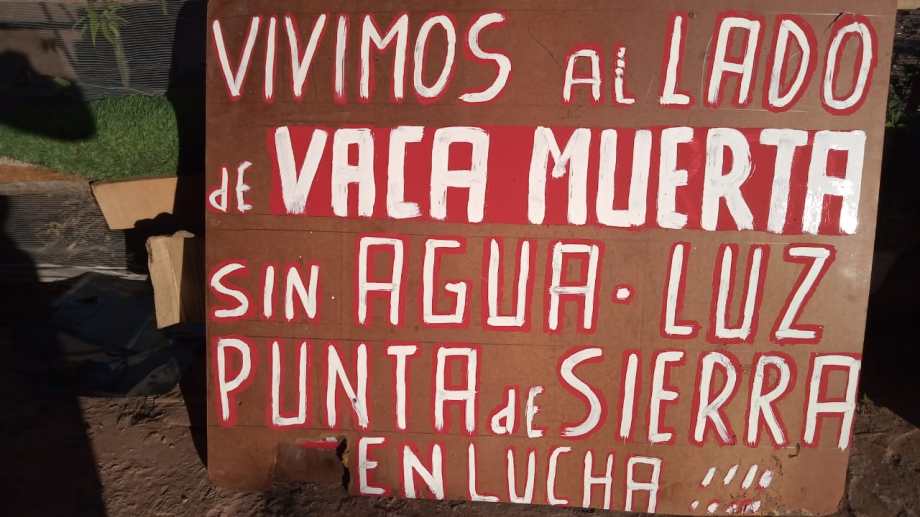 VIVIMOS Al LADO
de VACA MUERTA
SIN AGUA · LUZ
PUNTA de SIERRA
EN LUCHA !!!!